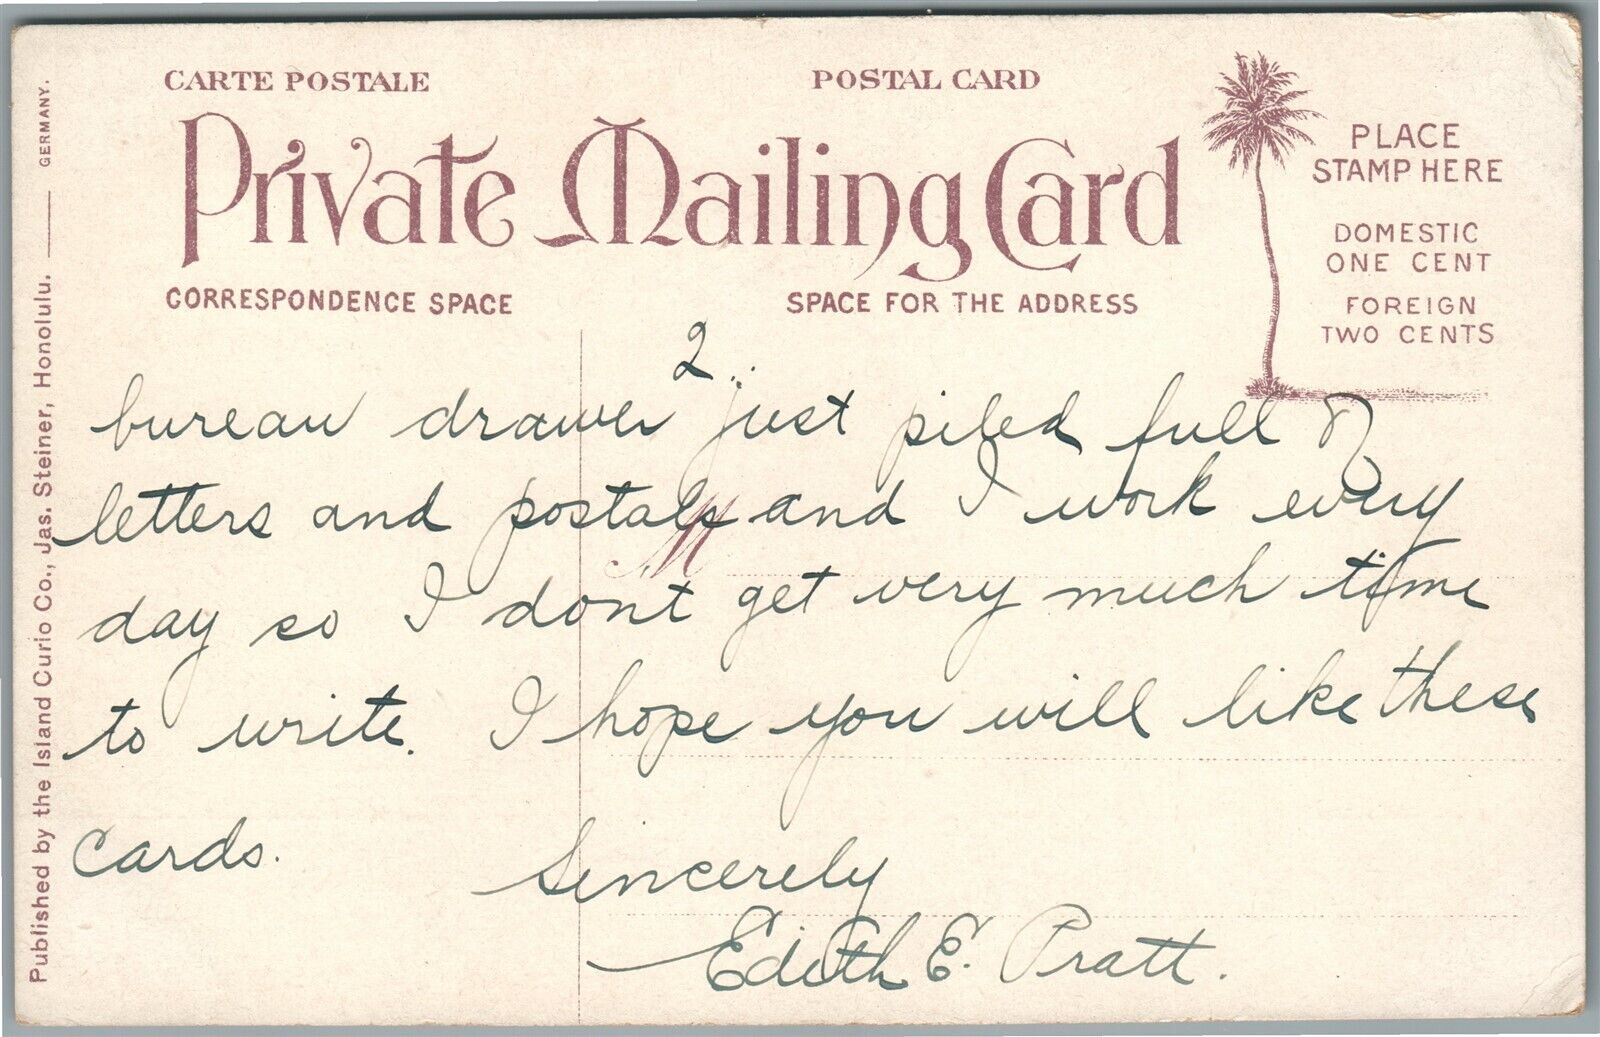 CARTE POSTALE
POSTAL CARD
Private Mailing Card
PLACE
STAMP HERE
DOMESTIC
ONE CENT
FOREIGN
TWO CENTS
CORRESPONDENCE SPACE
SPACE FOR THE ADDRESS
2
bureau drawer just piled full of
letters and postals and I work every
M
day so I dont get very much time
to write. I hope you will like these
cards.
Sincerely
Edith E. Pratt.
Published by the Island Curio Co., Jas. Steiner, Honolulu. — GERMANY.